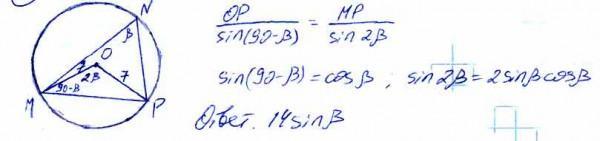 N
β
O
7
2β
7
90-β
M
P
OP/sin(90-β) = MP/sin 2β
sin(90-β) = cosβ ; sin 2β = 2sinβcosβ
Ответ. 14sinβ